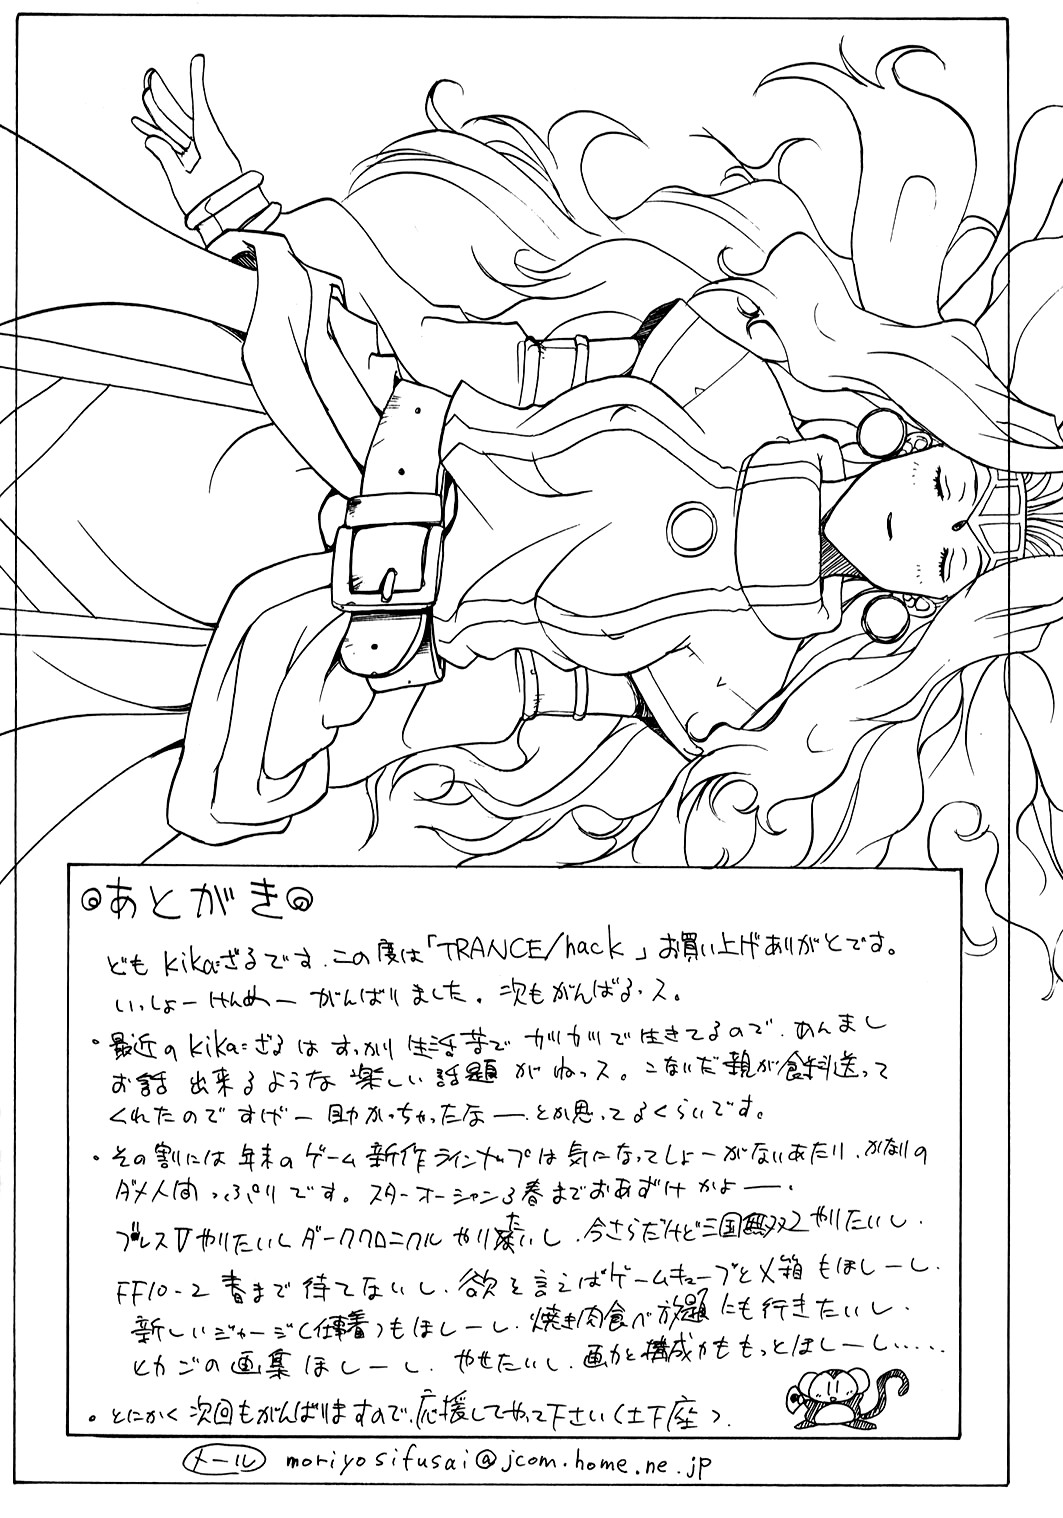 あとがき
ども kikaざるです．この度は「TRANCE/hack」お買い上げありがとです。
いっしょーけんめーがんばりました。次もがんばる・ス。
・最近のkikaざるはすっかり生活苦でガリガリで生きてるので、あんまし
お話出来るような楽しい話題がねっス。こないだ親が食料送って
くれたのですげー助かっちゃったなー．とか思ってるくらいです。
・その割には年末のゲーム新作ラインナップは気になってしょーがないあたり、かなりの
ダメ人間っぷりです。スターオーシャン3春までおあずけかよー．
ブレスⅤやりたいしダーククロニクルやりたいし．今さらだけど三国無双2やりたいし．
FF10-2春まで待てないし．欲を言えばゲームキューブとX箱もほしーし．
新しいジャージ(仕事着)もほしーし．焼き肉食べ放題にも行きたいし．
ヒカゴの画集ほしーし．やせたいし．画力と構成力ももっとほしーし……
・とにかく次回もがんばりますので、応援してやって下さい(土下座)．
メール moriyosifusai@jcom.home.ne.jp